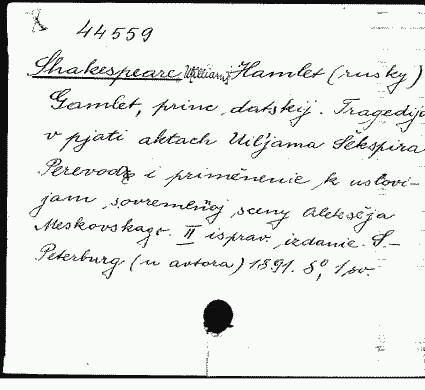 44559
Shakespeare William, Hamlet (rusky)
Gamlet, princ datskij. Tragedija
v pjati aktach Uil'jama Šêkspira
Perevodz i primênenie k uslovi-
jam sovremennoj sceny Aleksêja
Meskovskago. II isprav. izdanie. S-
Peterburg (u avtora) 1891. 8°, 1 sv.